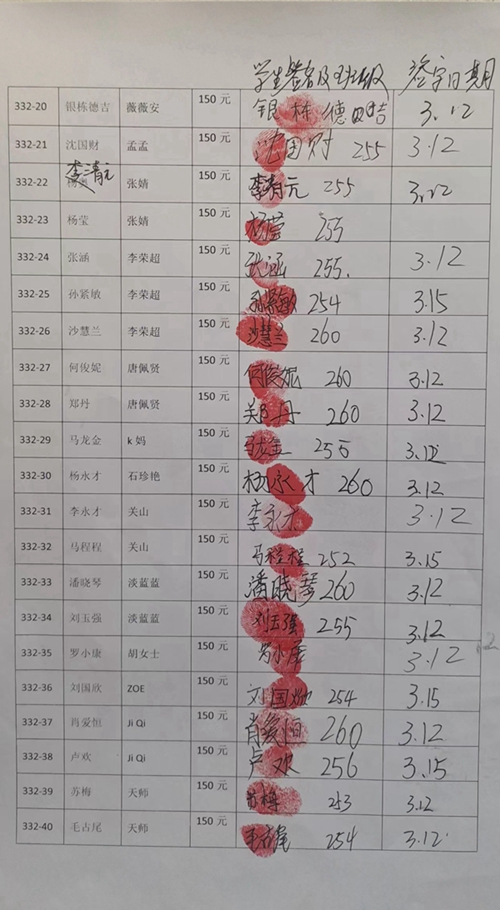 学生签名及班级 签字日期
332-20 银栋德吉 薇薇安 150 元 银栋德吉 3.12
332-21 沈国财 孟孟 150 元 沈国财 255 3.12
332-22 李清元 张婧 150 元 李有元 255 3.12
332-23 杨莹 张婧 150 元 杨莹 255
332-24 张涵 李荣超 150 元 张涵 255. 3.12
332-25 孙紧敏 李荣超 150 元 孙紧敏 254 3.15
332-26 沙慧兰 李荣超 150 元 沙慧兰 260 3.12
332-27 何俊妮 唐佩贤 150 元 何俊妮 260 3.12
332-28 郑丹 唐佩贤 150 元 郑丹 260 3.12
332-29 马龙金 k 妈 150 元 马龙金 3.12
332-30 杨永才 石珍艳 150 元 杨永才 260 3.12
332-31 李永才 关山 150 元 李永才 3.12
332-32 马程程 关山 150 元 马程程 252 3.15
332-33 潘晓琴 淡蓝蓝 150 元 潘晓琴 260 3.12
332-34 刘玉强 淡蓝蓝 150 元 刘玉强 255 3.12
332-35 罗小康 胡女士 150 元 罗小康 3.12
332-36 刘国欣 ZOE 150 元 刘国 254 3.15
332-37 肖爱恒 Ji Qi 150 元 肖爱恒 260 3.12
332-38 卢欢 Ji Qi 150 元 卢欢 256 3.15
332-39 苏梅 天师 150 元 苏梅 253 3.12
332-40 毛古尾 天师 150 元 毛古尾 254 3.12